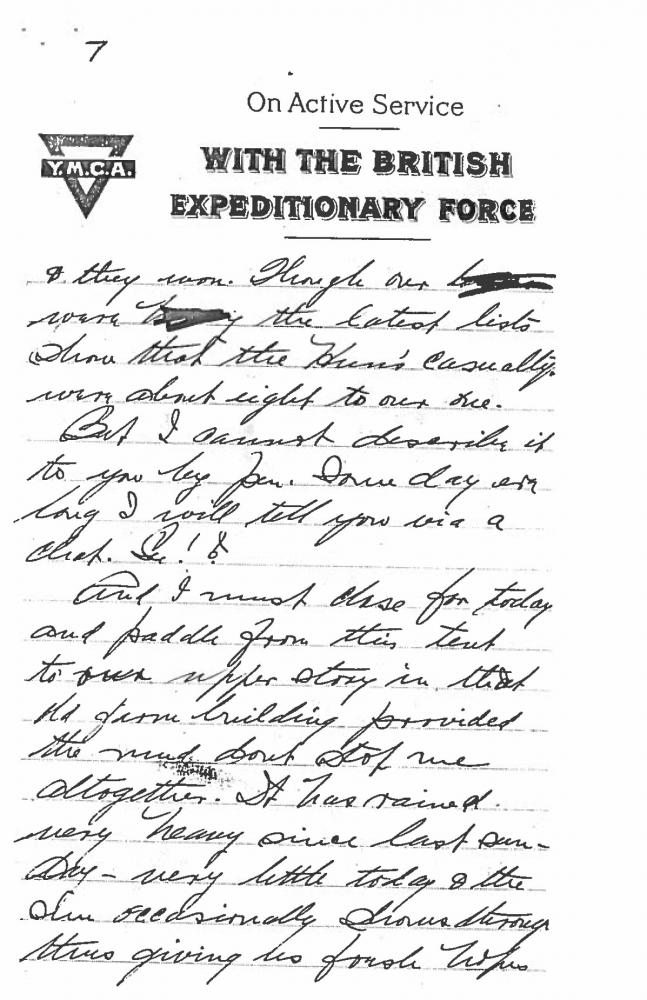 7
On Active Service
Y.M.C.A.
WITH THE BRITISH
EXPEDITIONARY FORCE
& they won. Though our
were the latest lists
show that the Hun's casualty.
were about eight to our one.
But I cannot describe it
to you by pen. Some day ere
long I will tell you via a
chat. See!!
And I must close for today
and paddle from this tent
to our upper story in that
old farm building provided
the mud dont stop me
altogether. It has rained
very heavy since last Sun-
day - very little today & the
sun occasionally shows through
thus giving us fresh hopes